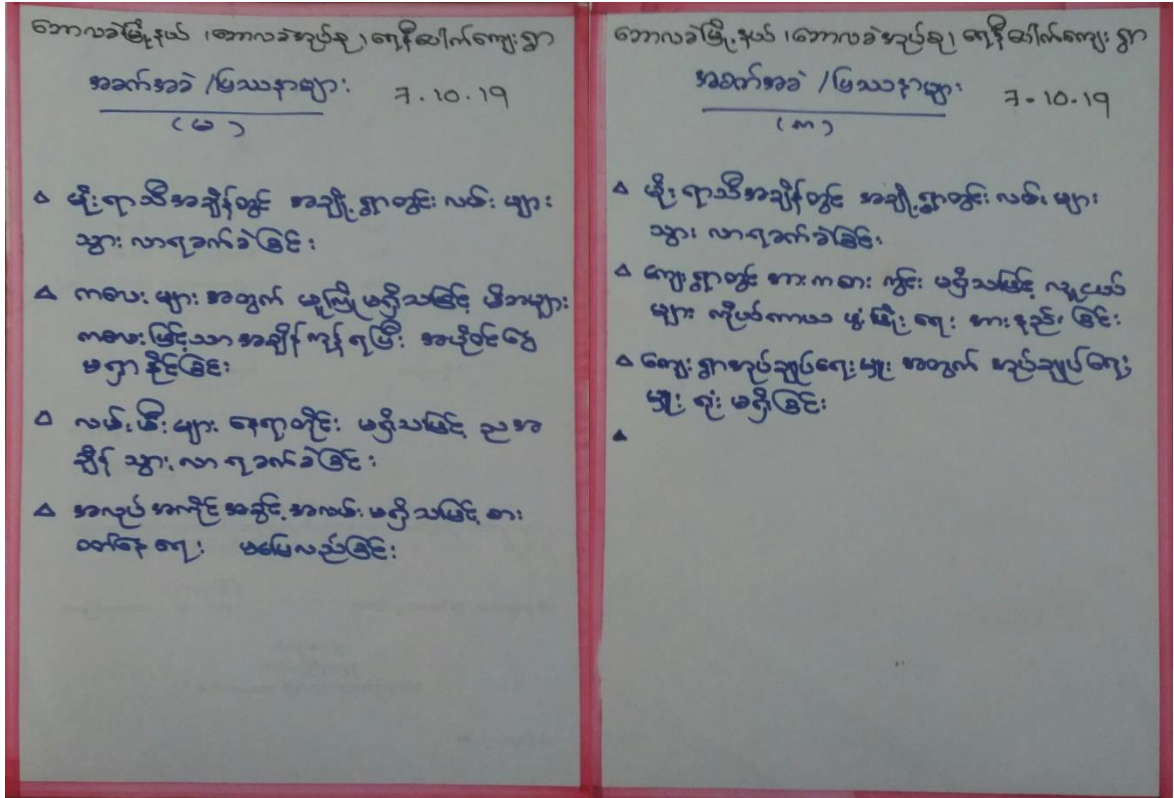 ဘောလခဲမြို့နယ် ၊ဘောလခဲအုပ်စု၊ ရေနီပေါက်ကျေးရွာ
အခက်အခဲ /ပြဿနာများ
7.10.19
(မ)
∆ မိုးရာသီအချိန်တွင် အချို့ရွာတွင်းလမ်းများ
သွားလာရခက်ခဲခြင်း
∆ ကလေးများအတွက် မူကြိုမရှိသဖြင့် မိဘများ
ကလေးဖြင့်သာအချိန်ကုန်ရပြီး အပိုဝင်ငွေ
မရှာနိုင်ခြင်း
∆ လမ်းမီးများ နေရာတိုင်း မရှိသဖြင့် ညအ
ချိန် သွားလာရခက်ခဲခြင်း
∆ အလုပ်အကိုင်အခွင့်အလမ်းမရှိသဖြင့် စား
ဝတ်နေရေး မပြေလည်ခြင်း
ဘောလခဲမြို့နယ် ၊ဘောလခဲအုပ်စု၊ ရေနီပေါက်ကျေးရွာ
အခက်အခဲ /ပြဿနာများ
7.10.19
(ကျား)
∆ မိုးရာသီအချိန်တွင် အချို့ရွာတွင်းလမ်းများ
သွားလာရခက်ခဲခြင်း
∆ ကျေးရွာတွင် အားကစားကွင်း မရှိသဖြင့် လူငယ်
များ ကိုယ်ကာယ ဖွံ့ဖြိုးရေး အားနည်းခြင်း
∆ ကျေးရွာအုပ်ချုပ်ရေးမှူးအတွက် အုပ်ချုပ်ရေး
မှူးရုံးမရှိခြင်း
∆